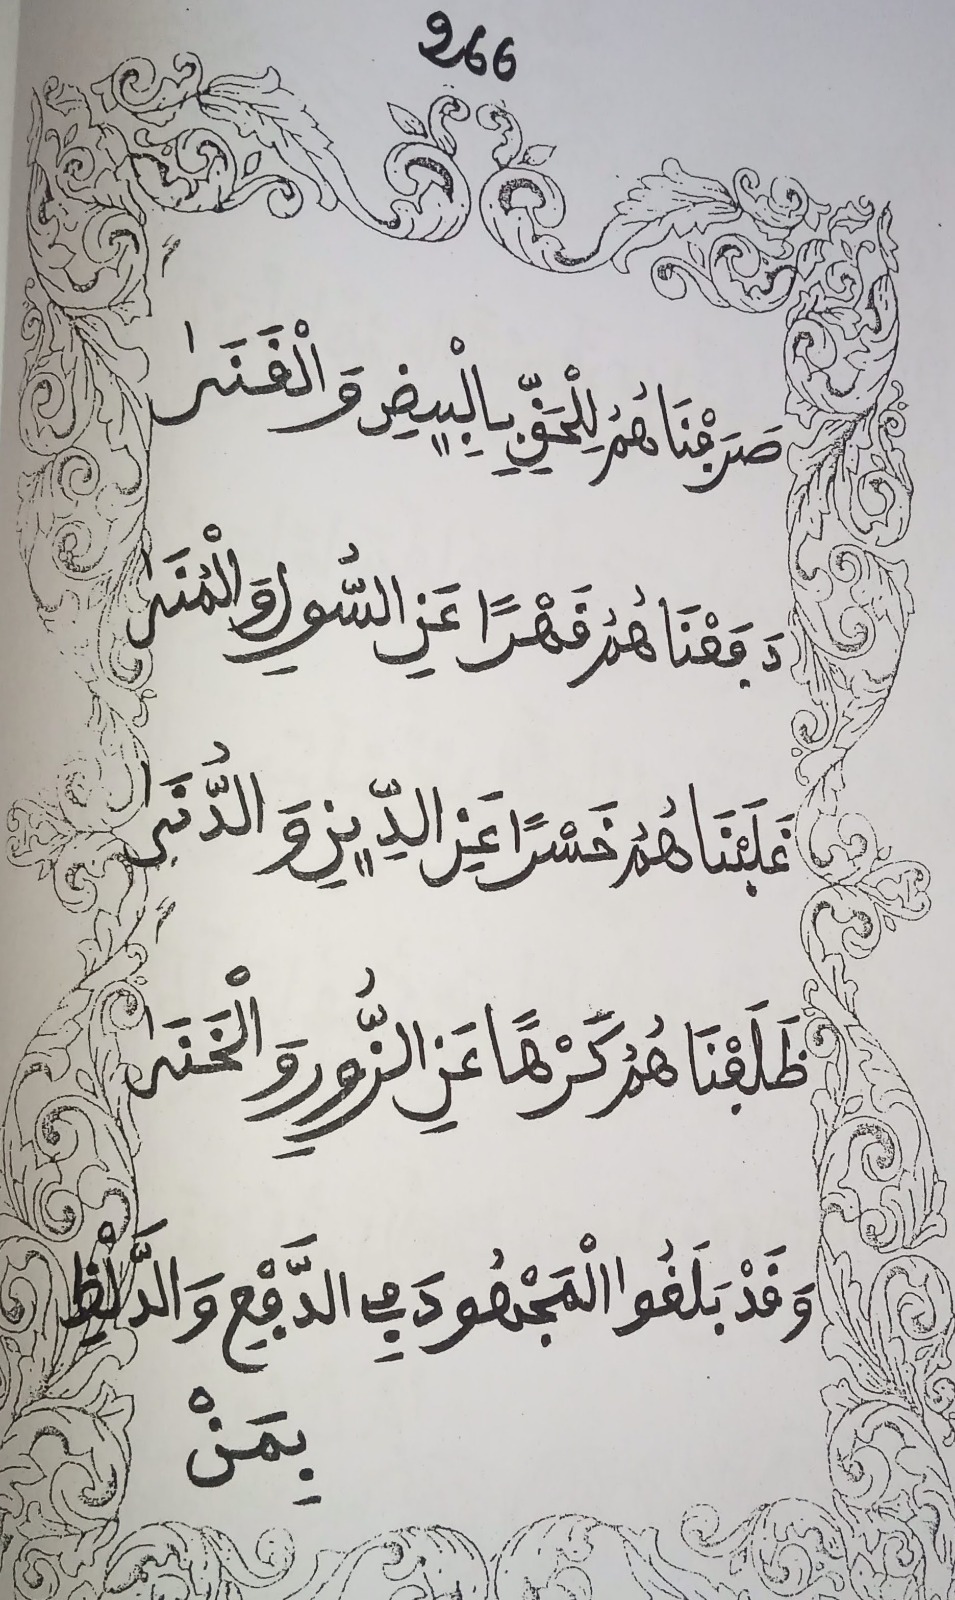 266
صَرَفْنَاهُمُ لِلْحَقِّ بِالْبِيضِ وَالْقَنَى
دَفَعْنَاهُمُ قَهْرًا عَنِ السُّولِ وَالْمُنَى
غَلَبْنَاهُمُ خَسْرًا عَنِ الدِّينِ وَالدُّنَى
ظَلَفْنَاهُمُ كَرْهًا عَنِ الزُّورِ وَالْخَنَى
وَقَدْ بَلَغُوا الْمَجْهُودَ فِي الدَّفْعِ وَالدَّلْظِ
بِمَنْ